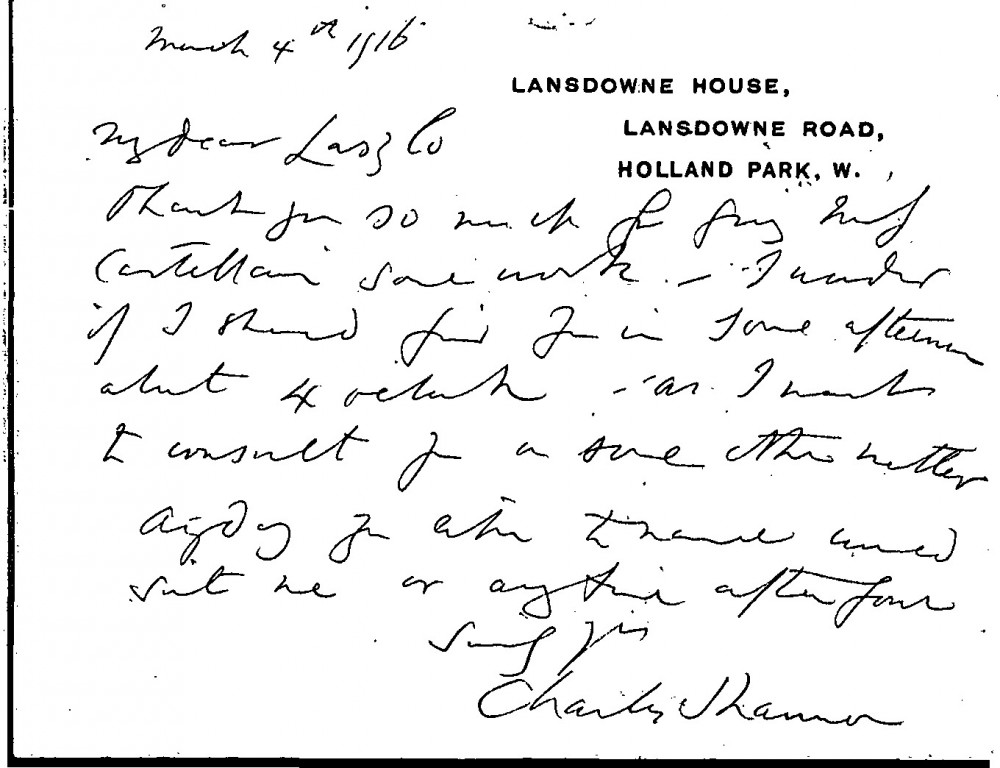 March 4th 1916
LANSDOWNE HOUSE,
LANSDOWNE ROAD,
HOLLAND PARK, W.
My dear Laszlo
Thank you so much for giving
Castellani some work – I wonder
if I should find you in some afternoon
about 4 oclock – as I want
to consult you on some other matter
Any day you like to name would
suit me or any time after four
Sincerely yrs
Charles Shannon